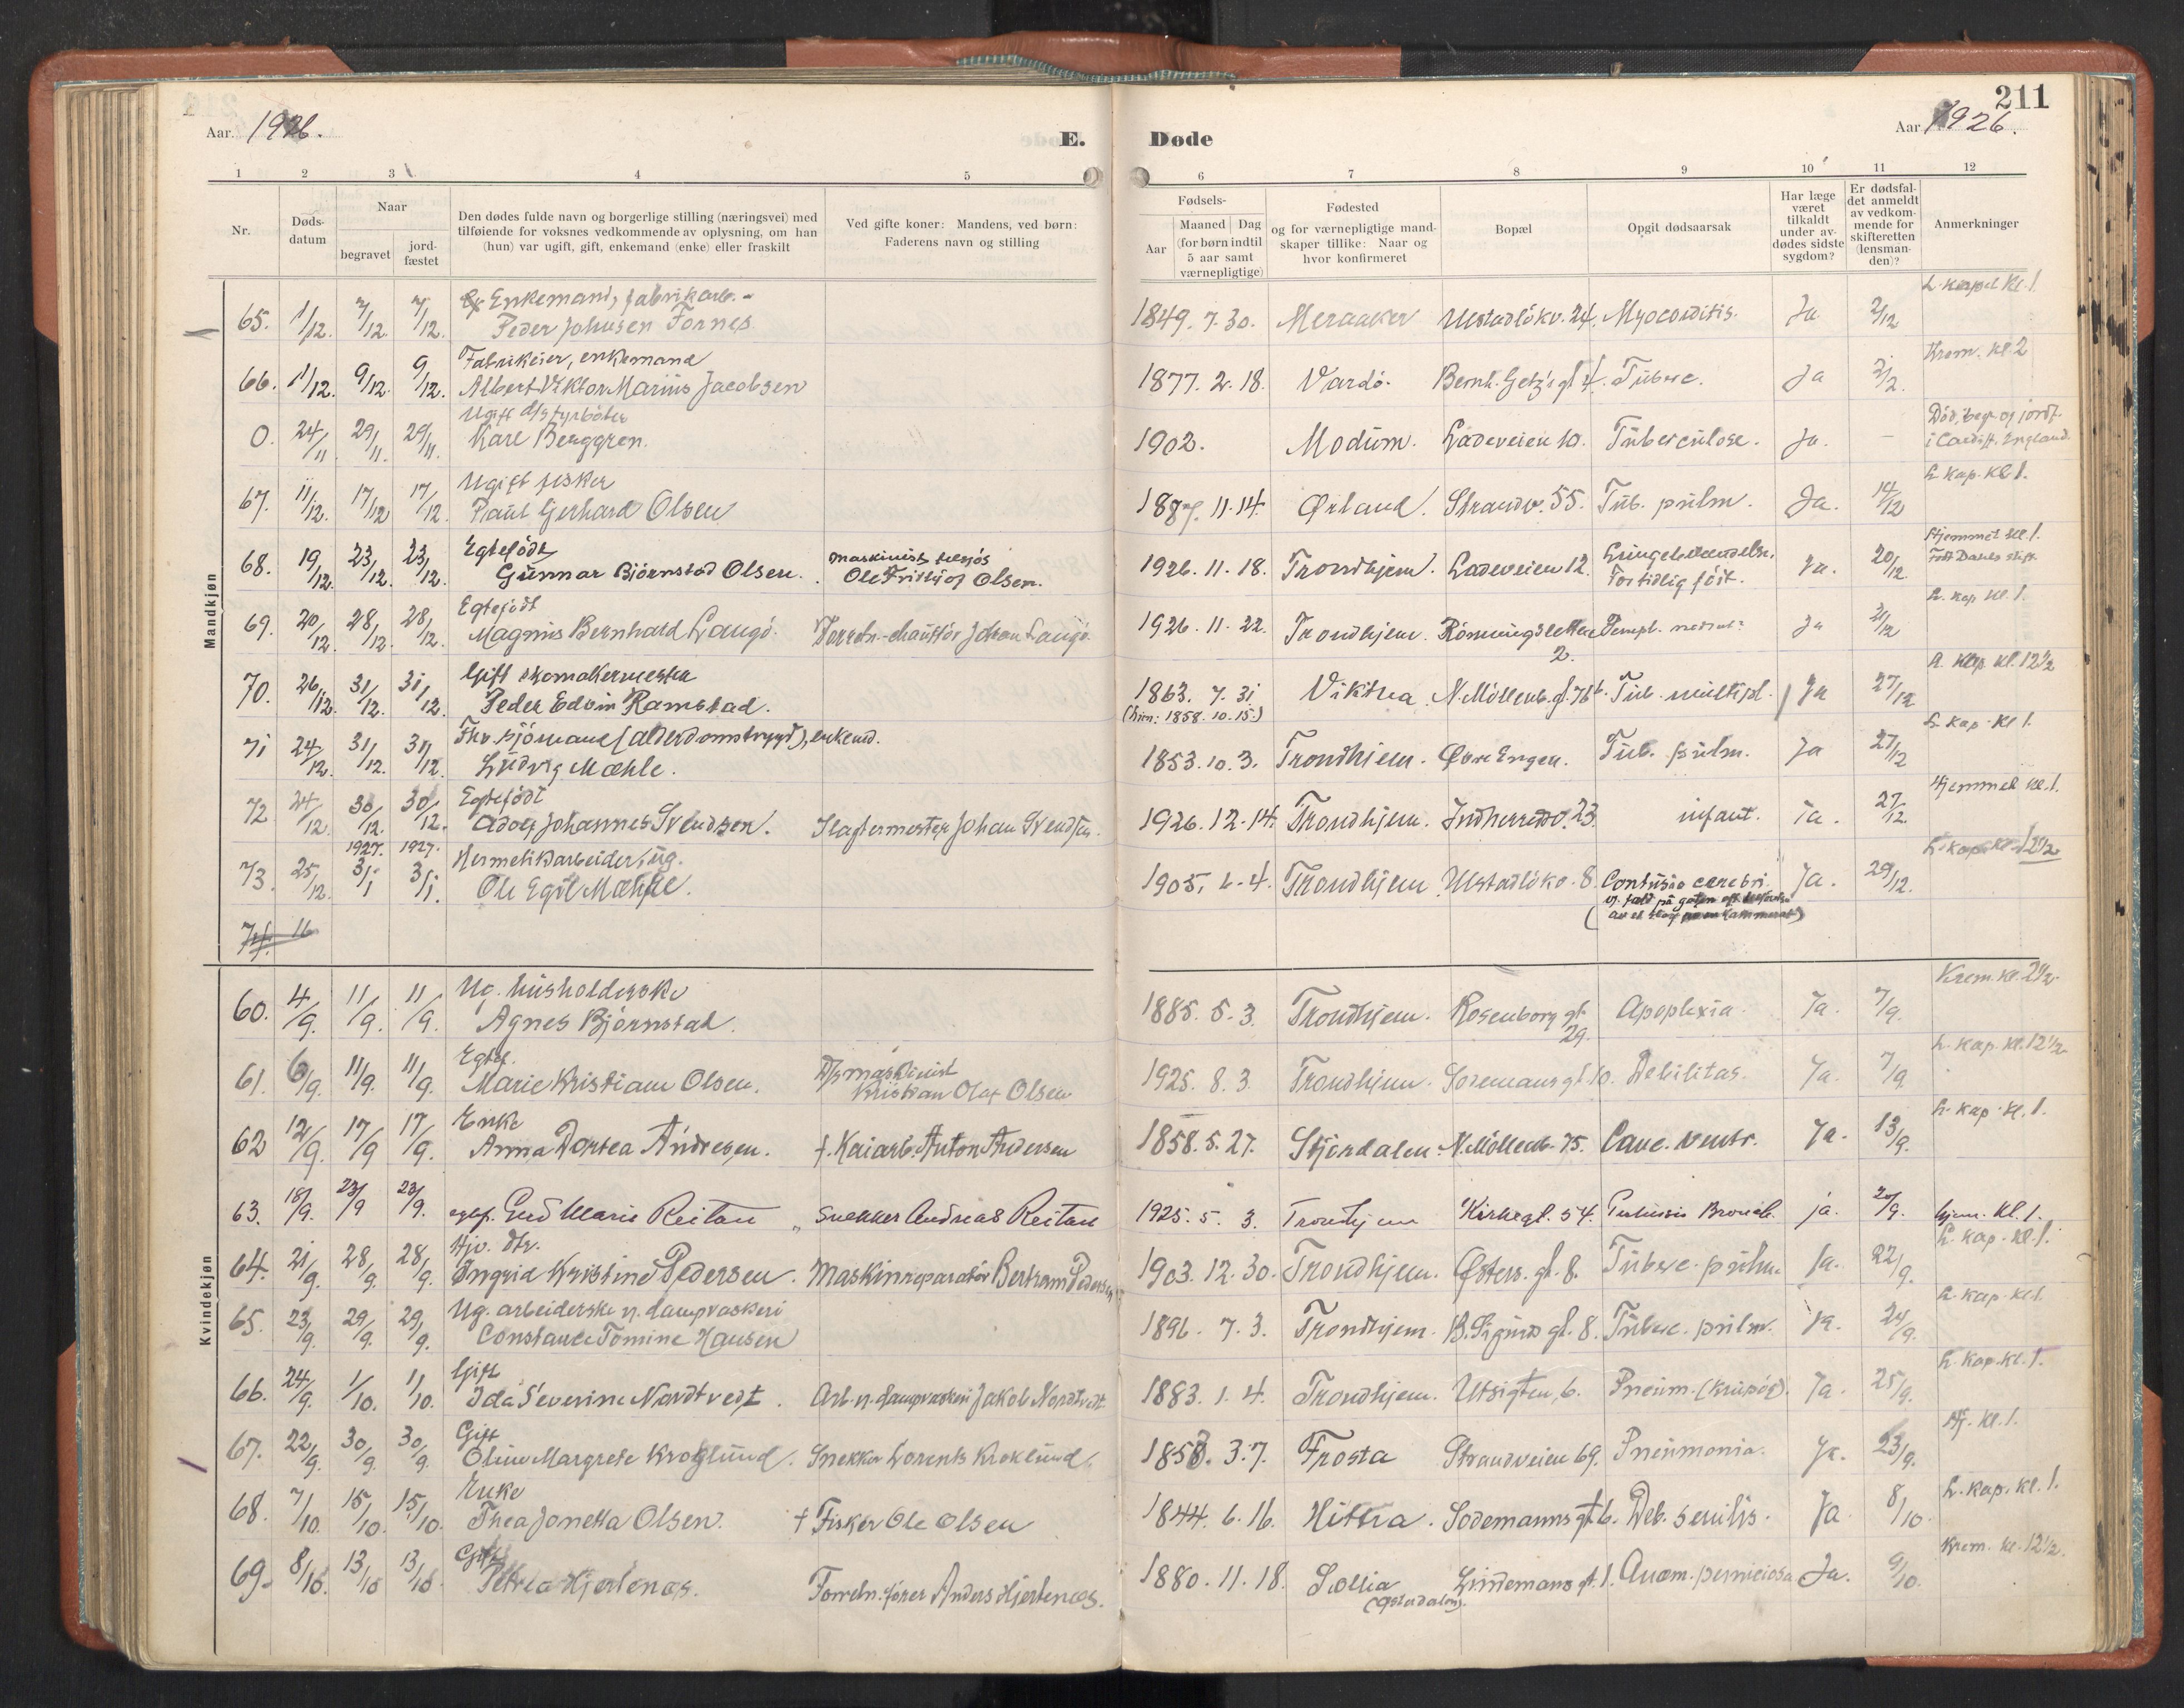 211
Aar. 1926.
E. Døde
Aar 1926.
1 2 3 4 5 6 7 8 9 10 11 12
Nr.
Døds-
datum
Naar
begravet
jord-
fæstet
Den dødes fulde navn og borgerlige stilling (næringsvei) med
tilføiende for voksnes vedkommende av oplysning, om han
(hun) var ugift, gift, enkemand (enke) eller fraskilt
Ved gifte koner: Mandens, ved børn:
Faderens navn og stilling
Fødsels-
Aar
Maaned Dag
(for børn indtil
5 aar samt
værnepligtige)
Fødested
og for værnepligtige mand-
skaper tillike: Naar og
hvor konfirmeret
Bopæl
Opgit dødsaarsak
Har læge
været
tilkaldt
under av-
dødes sidste
sygdom?
Er dødsfal-
det anmeldt
av vedkom-
mende for
skifteretten
(lensman-
den)?
Anmerkninger
Mandkjøn
Enkemand, fabrikarb. L. kapel kl. 1
65. 1/12. 7/12. 7/12. Peder Johnsen Fornes 1849. 7. 30. Meraaker Ulstadløkv. 24. Ja 2/12
Fabrikeier, enkemand Krem. kl. 2
66. 1/12. 9/12. 9/12. Albert Viktor Marius Jacobsen 1877. 2. 18. Vardø. Bernh. Getz's gt 4. Tuberc. Ja
Ugift d/s fyrbøter Død, begr. og jordf.
0. 24/11 29/11. 29/11. Karl Berggren. 1902. Modum. Ladeveien 10. Tuberculose. Ja. – i Cardiff, England.
Ugift fisker L. kap. kl. 1.
67. 11/12. 17/12 17/12. Paul Gerhard Olsen 11. 14. Ørland. Strandv. 55. Tub. pulm. Ja. 14/12
Egtefødt Maskinist tilsjøs Hjemmet kl. 1.
68. 19/12. 23/12. 23/12. Gunnar Bjørnstad Olsen. Ole Fritjof Olsen. 1926. 11. 18. Trondhjem. Ladeveien 12. For tidlig født. Ja. 20/12
Egtefødt L. kap. kl. 1.
69. 20/12. 28/12. 28/12. Magnus Bernhard Laugø. Johan Laugø 1926. 11. 22. Trondhjem. Rønningsletten 2. Ja 21/12
Gift skomakermester kl. 12 1/2
70. 26/12. 31/12. 31/12. Peder Edvin Ramstad. 1863. 7. 31 Viktna N. Møllenb. gt. Tub. multipl. Ja 27/12
1858. 10. 15.)
Fhv. sjømand (alderdomstrygd), enkemd. L. kap. kl 1.
71 24/12. 31/12. 31/12. Ludvig Mæhle. 1853. 10. 3. Trondhjem. Øvre Engen. Tub. pulm. Ja 27/12
Egtefødt Hjemmet kl. 1.
72 24/12. 30/12. 30/12. Adolf Johannes Svendsen. Slagtermester Johan Svendsen. 1926. 12. 14. Trondhjem. Indherredsv. 23. infant. Ja. 27/12.
1927. 1927. Hermetikkarbeider, ug.
73. 25/12. 3/1 3/1. Ole Egil Mæhle. 1905. Trondhjem. Ulstadløkv. 8. Contusio cerebri. Ja. 29/12.
74. 16
Kvindekjøn
Ug. husholderske Krem. kl. 2 1/2
60. 4/9. 11/9. 11/9. Agnes Bjørnstad. 1885. 5. 3. Trondhjem. Rosenborg gt. 29. Apoplexia. Ja. 7/9.
Egtef. D/s maskinist L. kap. kl. 12 1/2
61. 6/9. 11/9. 11/9. Marie Kristiane Olsen. Kristian Olaf Olsen 1925. 8. 3. Trondhjem. Sodemans gt. 10. Debilitas. Ja. 7/9.
Enke L. kap. kl. 1.
62 12/9. 17/9 17/9. Anna Dortea Andresen. † Kaiarb. Anton Andersen 1858. 5. 27. Stjørdalen. N. Møllenb. 75. Canc. ventr. Ja. 13/9.
63. 18/9. 23/9 23/9. egtef. Gerd Marie Reitan Snekker Andreas Reitan 1925. 5. 3. Trondhjem Kirkegt. 54. ja. 20/9. hjem. kl. 1.
Hjv. dtr. L. kap. kl. 1.
64. 21/9. 28/9. 28/9. Ingrid Kristine Pedersen. Maskinreparatør Bertram Pedersen 1903. 12. 30. Trondhjem. Østers. gt. 8. Tuberc. pulm Ja. 22/9.
Ug. arbeiderske v. dampvaskeri L. kap. kl. 1.
65. 23/9. 29/9. 29/9. Constance Tomine Hansen 1896. 7. 3. Trondhjem. B. Sigurds gt. 8. Tuberc. pulm. Ja. 24/9.
Gift L. kap. kl. 1.
66. 24/9. 1/10. 1/10. Ida Severine Nordtvedt. Arb. v. dampvaskeri Jakob Nordtvedt 1883. 1. 4. Trondhjem. Utsigten 6. Pneum. (krupøs). Ja. 25/9.
Gift kl. 1.
67. 22/9. 30/9. 30/9. Oline Margrete Kroglund. Snekker Lorents Kroklund. 3. 7. Frosta Strandveien 69. Pneumonia. Ja. 23/9.
Enke L. kap. kl. 1.
68. 7/10. 15/10. 15/10. Thea Jonetta Olsen. † Fisker Ole Olsen 1844. 6. 16. Hittra. Sodemanns gt. 6. Deb. senilis. Ja. 8/10.
Gift Krem. kl. 12 1/2.
69. 8/10. 13/10 13/10. Petrea Hjertenæs. Forretn. fører Anders Hjertenæs. 1880. 11. 18. Sollia Lindemans gt. 1. Anæm. perniciosa Ja. 9/10.
(Østerdalen).